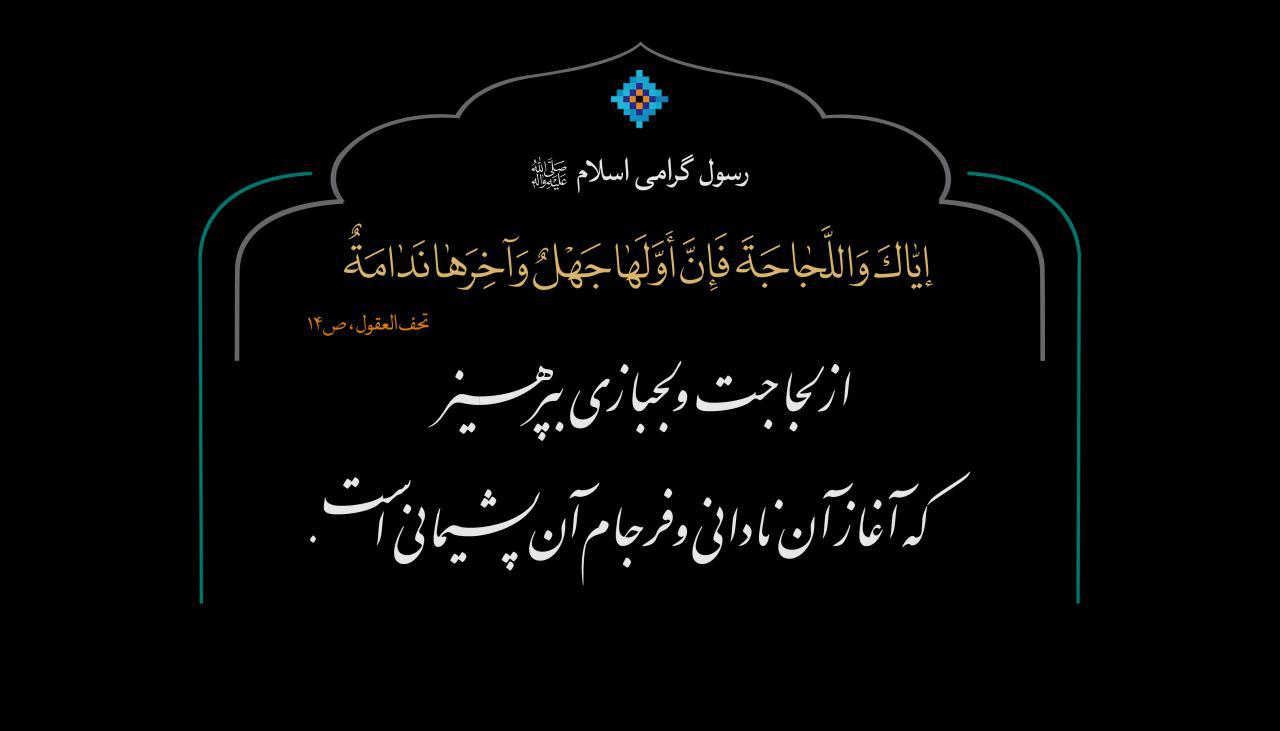 رسول گرامی اسلام ﷺ
إيّاكَ وَاللَّجاجَةَ فَإِنَّ أَوَّلَها جَهْلٌ وَآخِرَها نَدامَةٌ
تحف‌العقول، ص۱۴
از لجاجت و لجبازی بپرهیز
که آغاز آن نادانی و فرجام آن پشیمانی است.